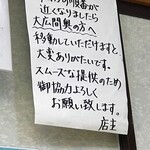 の順番が
近くなりましたら
大広間奥の方へ
移動していただけますと
大変ありがたいです。
スムーズな提供のため
御協力よろしく
お願い致します。
店主